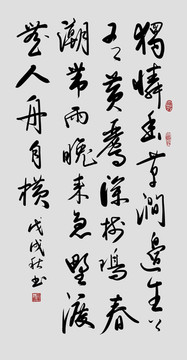 獨憐幽草澗邊生上
有黃鸝深樹鳴春
潮帶雨晚來急野渡
無人舟自橫
戊戌秋书